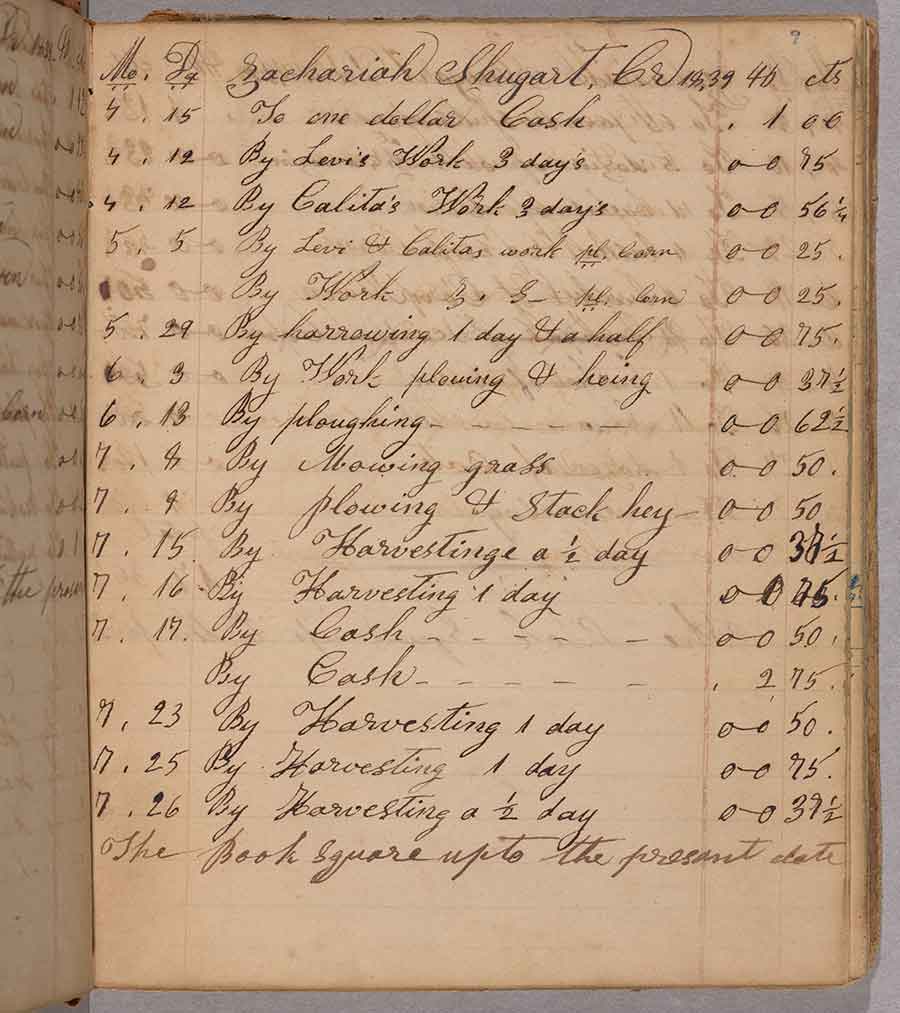 Mo. Da Zachariah Shugart, Cr 1839 cts
4 . 15 To one dollar Cash . 1 00
4 . 12 By Levi's Work 3 day's 0-0 75
4 . 12 By Calita's Work 3 day's 0-0 56 1/4
5 . 5 By Levi & Calitas work pl. Corn 0-0 25.
By Work pl. Corn 0-0 25.
5 . 29 By harrowing 1 day & a half 0-0 75.
6 . 3 By Work plowing & hoing 0-0 37 1/2
6 . 13 By ploughing - - - - - 0-0 62 1/2
7 . 8 By Mowing grass 0-0 50.
7 . 9 By plowing & Stack hey - 0-0 50
7 . 15 By Harvestinge a 1/2 day 0-0 37 1/2
7 . 16 By Harvesting 1 day 75.
7 . 17. By Cash - - - - - 0-0 50.
By Cash - - - - - . 2 75.
7 . 23 By Harvesting 1 day 0-0 50.
7 . 25 By Harvesting 1 day 0-0 75.
7 . 26 By Harvesting a 1/2 day 0-0 37 1/2
The Book Square upto the present date